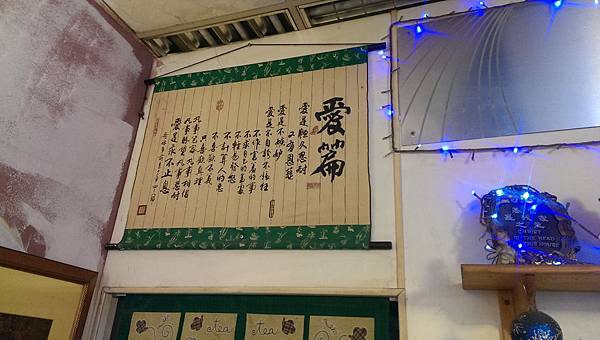 愛篇
愛是恆久忍耐
又有恩慈
愛是不嫉妒
愛是不自誇不張狂
不作害羞的事
不求自己的益處
不輕易發怒
不計算人的惡
不喜歡不義
只喜歡真理
凡事包容凡事相信
凡事盼望凡事忍耐
愛是永不止息
之主
CHRIST
IS THE HEAD
THIS HOUSE
tea
tea